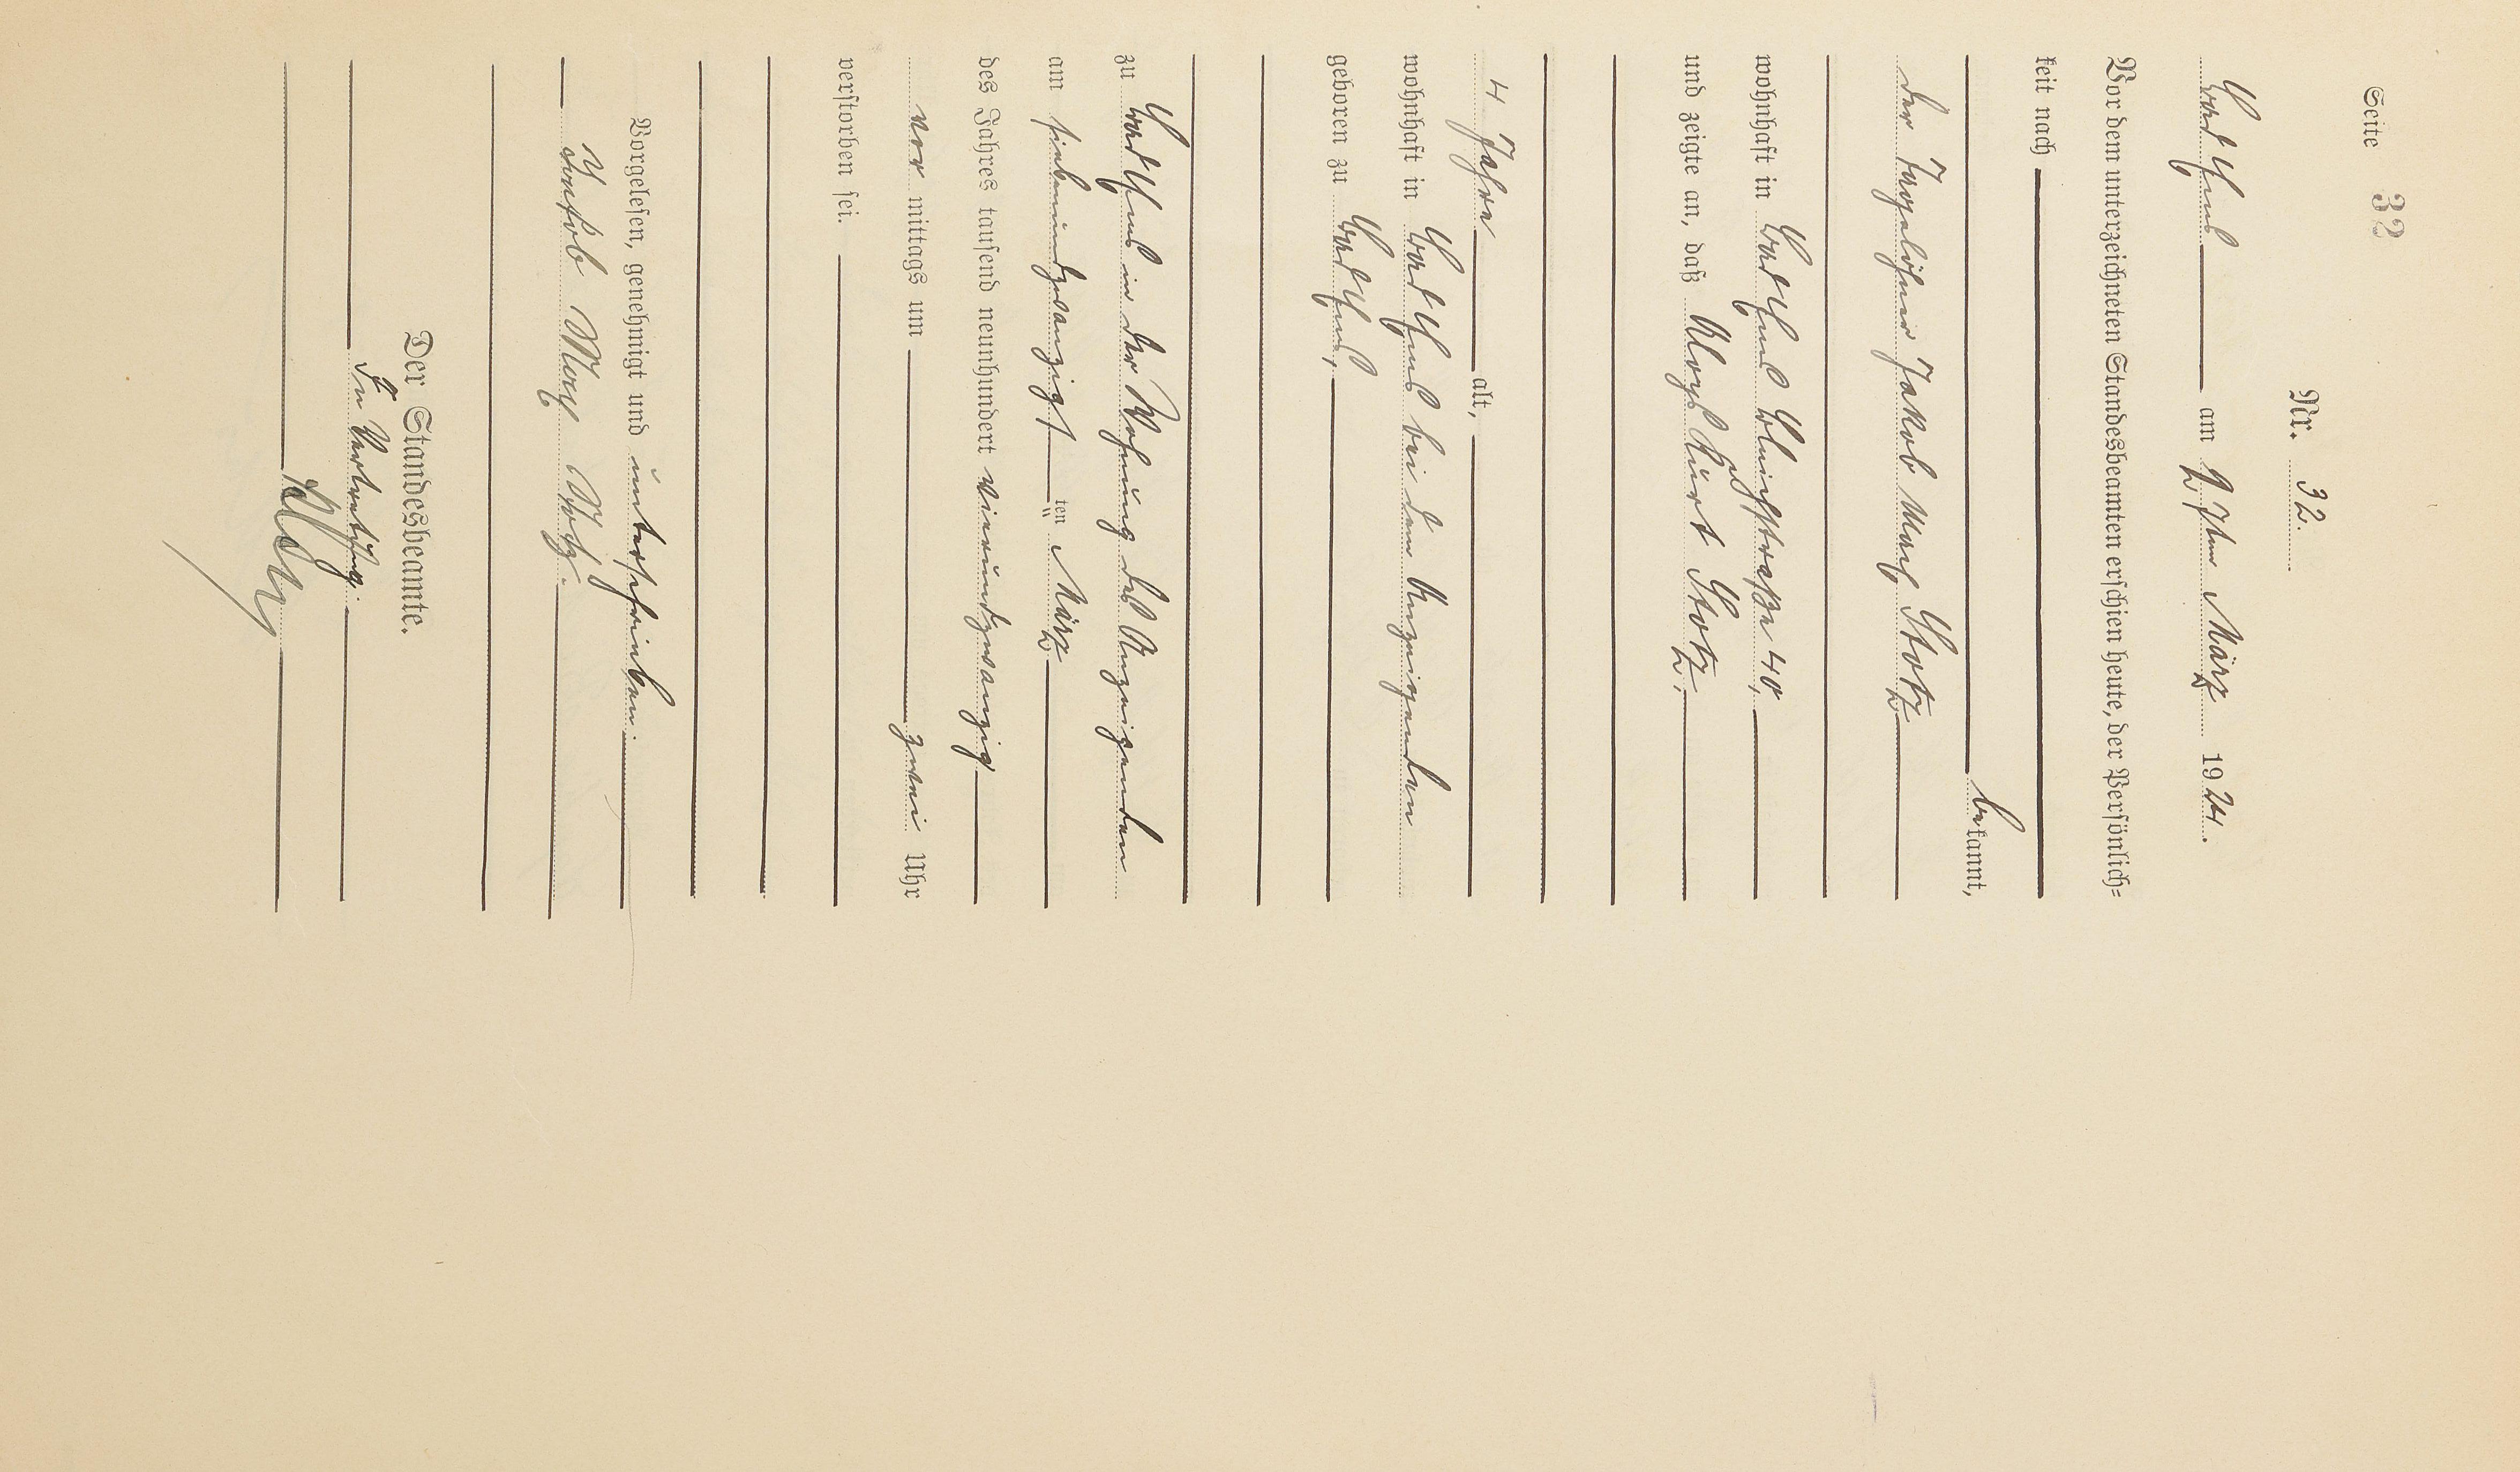 Seite 32
Nr. 32.
Bad Ems am 27ten März 1924.
Vor dem unterzeichneten Standesbeamten erschien heute, der Persönlich=
keit nach
bekannt,
der Tagelöhner Jakob Max Stotz
wohnhaft in Bad Ems Bleichstraße 40,
und zeigte an, daß Aloys Kurt Stotz,
4 Jahre alt,
wohnhaft in Bad Ems bei dem Anzeigenden
geboren zu Bad Ems,
zu Bad Ems in der Wohnung des Anzeigenden
am siebenundzwanzigsten März
des Jahres tausend neunhundert vierundzwanzig
vor mittags um zwei Uhr
verstorben sei.
Vorgelesen, genehmigt und unterschrieben.
Jakob Max Stotz.
Der Standesbeamte.
In Vertretung.